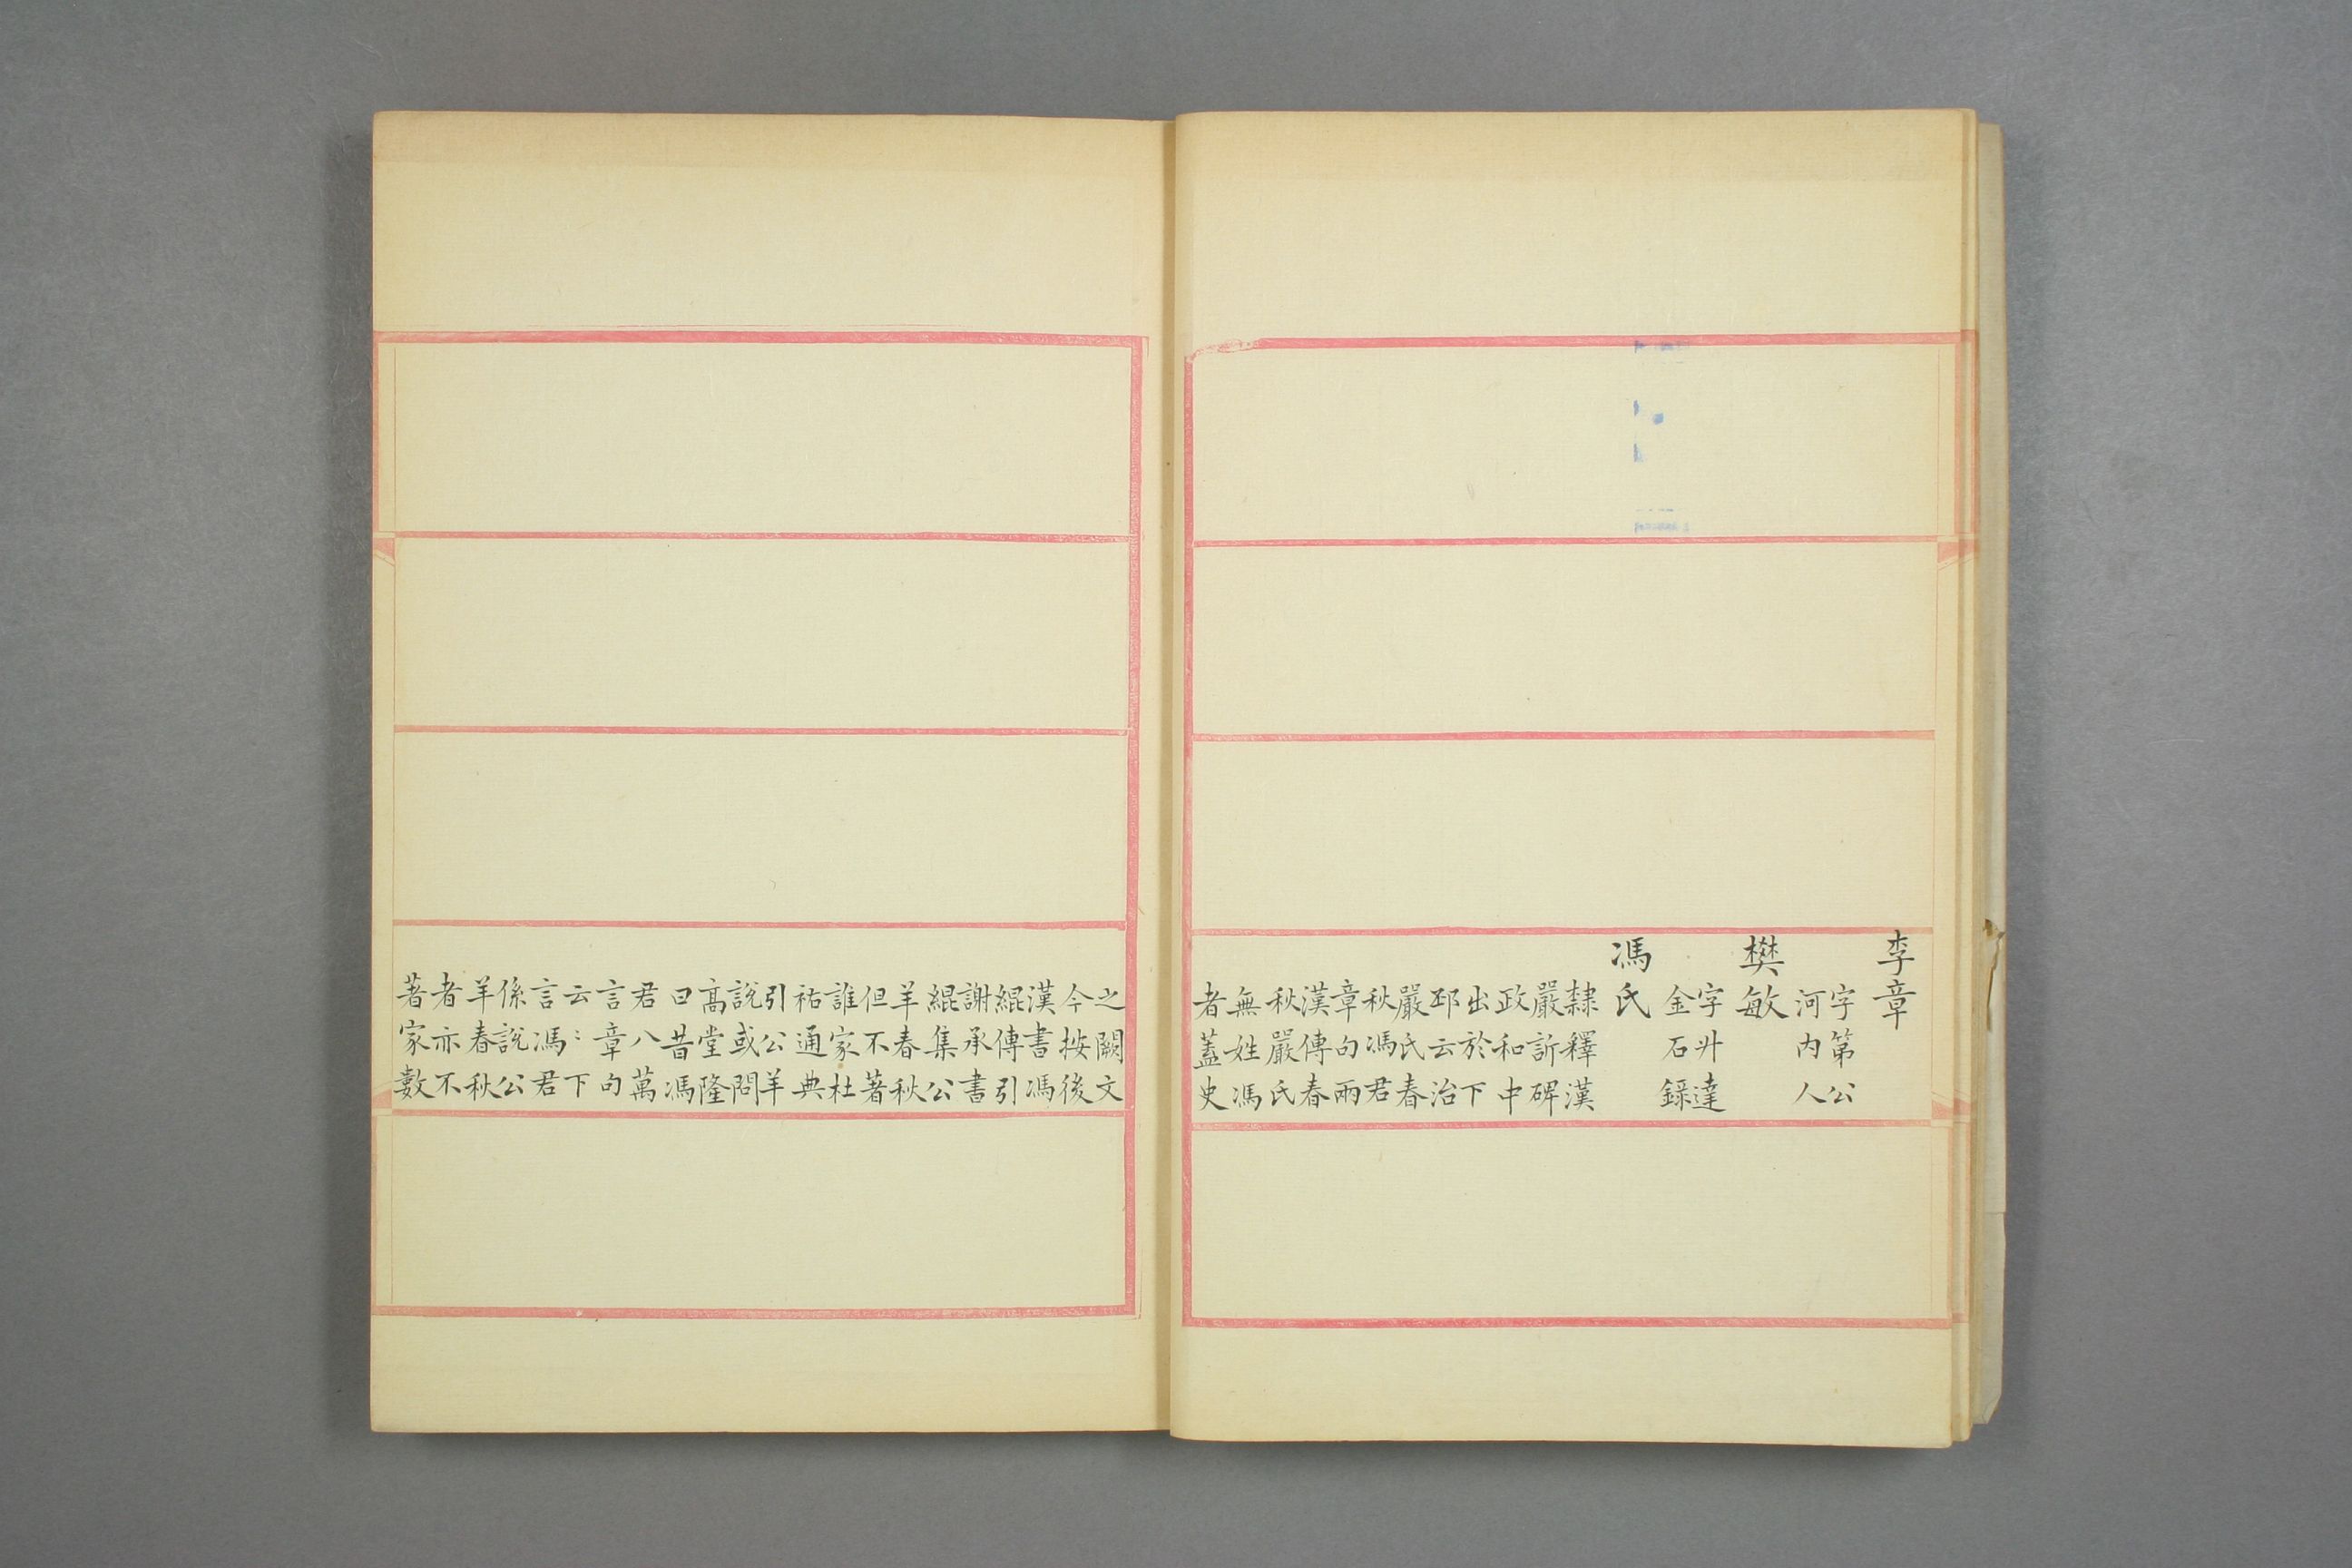 李章
字第公
河内人
樊敏
字升達
金石錄
馮氏
隸釋漢
嚴訢碑
政和中
出於下
邳云治
嚴氏春
秋馮君
章句兩
漢傳春
秋嚴氏
無姓馮
者蓋史
之闕文
今按後
漢書馮
緄傳引
謝承書
緄集公
羊春秋
但不著
誰家杜
祐通典
引公羊
說或問
高堂隆
曰昔馮
君八萬
言章句
云〻下
言馮君
係說公
羊春秋
者亦不
著家數